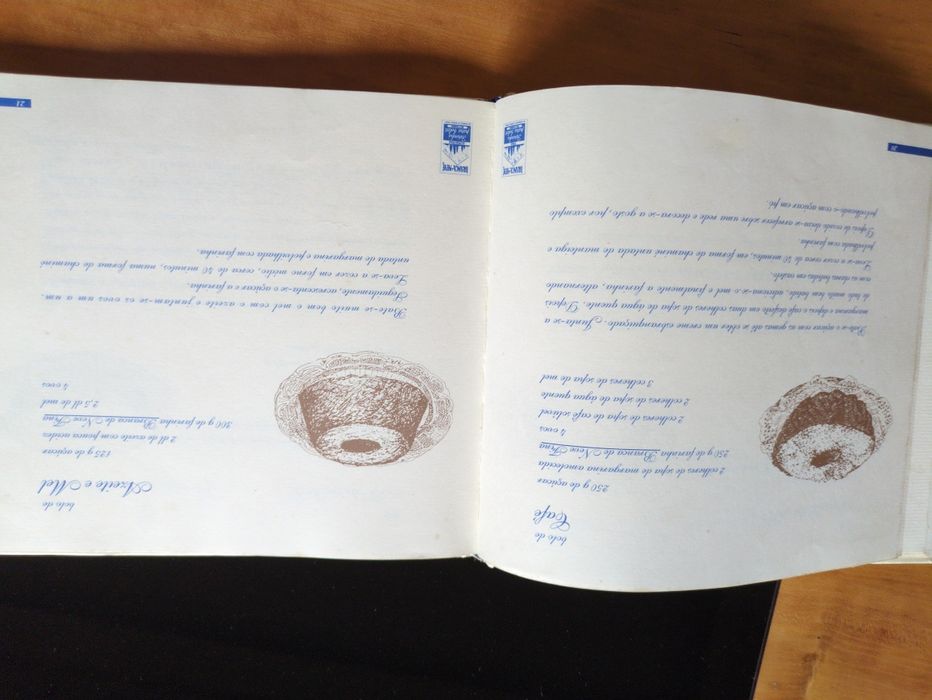 bolo de
Café
250 g de açúcar
2 colheres de sopa de margarina amolecida
250 g de farinha Branca de Neve Fina
4 ovos
2 colheres de sopa de café solúvel
2 colheres de sopa de água quente
3 colheres de sopa de mel
Bate-se o açúcar com as gemas até se obter um creme esbranquiçado. Junta-se a
margarina e depois o café desfeito em duas colheres de sopa de água quente. Depois
de tudo muito bem batido, adiciona-se o mel e finalmente a farinha, alternando
com as claras batidas em castelo.
Leva-se a cozer cerca de 50 minutos, em forma de chaminé untada de manteiga e
polvilhada com farinha.
Depois de cozido deixa-se arrefecer sobre uma rede e decora-se a gosto, por exemplo
polvilhando-o com açúcar em pó.
20
BRANCA DE NEVE
bolo de
Azeite e Mel
125 g de açúcar
2 dl de azeite com pouca acidez
300 g de farinha Branca de Neve Fina
2,5 dl de mel
4 ovos
Bate-se muito bem o mel com o azeite e juntam-se os ovos um a um.
Seguidamente, acrescenta-se o açúcar e a farinha.
Leva-se a cozer em forno médio, cerca de 40 minutos, numa forma de chaminé
untada de margarina e polvilhada com farinha.
21
BRANCA DE NEVE